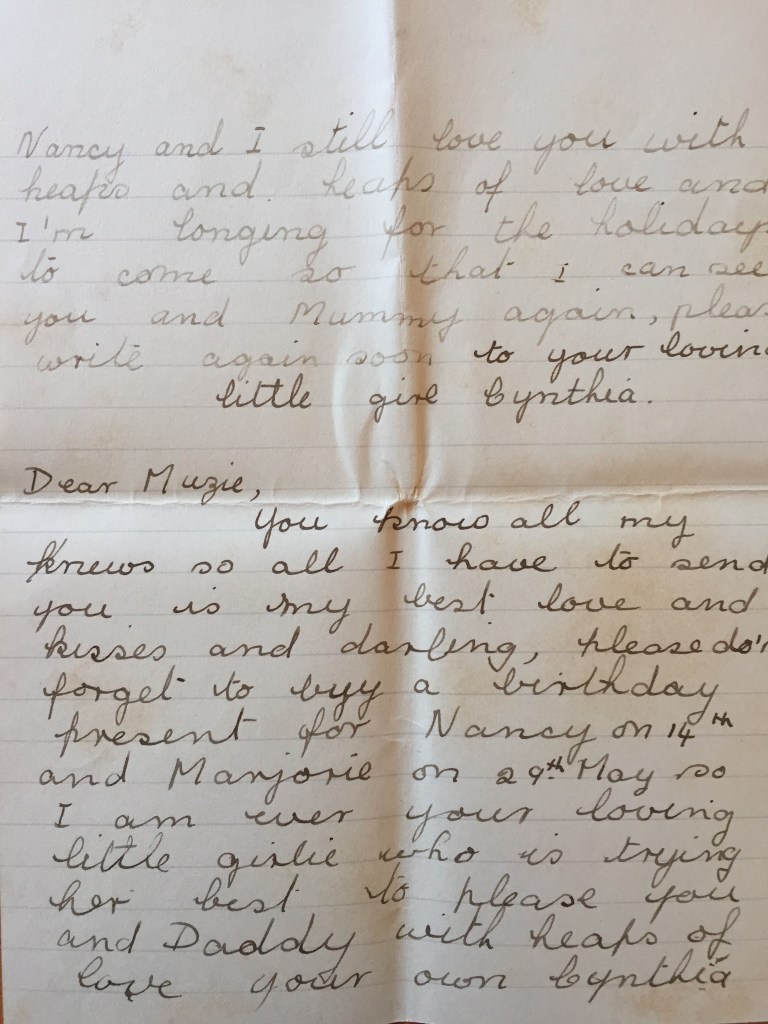 Nancy and I still love you with
heaps and. heaps of love and
I'm longing for the holidays
to come so that I can see
you and Mummy again, pleas
write again soon to your loving
little girl Cynthia.
Dear Muzie,
You know all my
knews so all I have to send
you is my best love and
kisses and darling, please do'n
forget to byy a birthday
present for Nancy on 14th
and Marjorie on 29th May so
I am ever your loving
little girlie who is trying
her best to please you
and Daddy with heaps of
love your own Cynthia